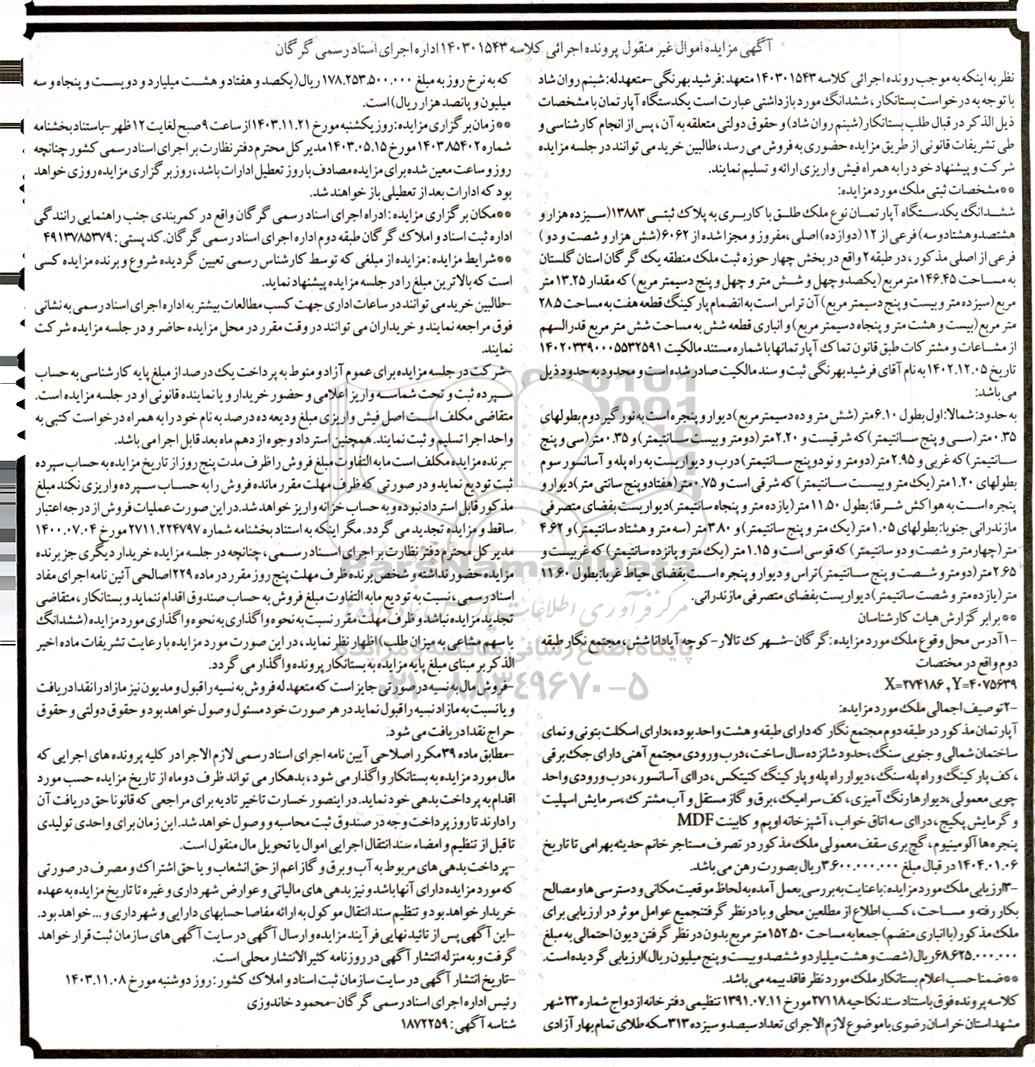 آگهی مزایده اموال غیر منقول پرونده اجرائی کلاسه ۱۴۰۳۰۱۵۴۳ اداره اجرای اسناد رسمی گرگان
نظر به اینکه به موجب رونده اجرائی کلاسه ۱۴۰۳۰۱۵۴۳ متعهد: فرشید بهرنگی -متعهدله: شبنم روان شاد
با توجه به درخواست بستانکار، ششدانگ مورد بازداشتی عبارت است یکدستگاه آپارتمان با مشخصات
ذیل الذکر در قبال طلب بستانکار (شبنم روان شاد) و حقوق دولتی متعلقه به آن، پس از انجام کارشناسی و
طی تشریفات قانونی از طریق مزایده حضوری به فروش می رسد، طالبین خرید می توانند در جلسه مزایده
شرکت و پیشنهاد خود را به همراه فیش واریزی ارائه و تسلیم نمایند.
**مشخصات ثبتی ملک مورد مزایده:
ششدانگ یکدستگاه آپارتمان نوع ملک طلق با کاربری به پلاک ثبتی ۱۳۸۸۳(سیزده هزار و
هشتصد و هشتاد و سه) فرعی از ۱۲ (دوازده) اصلی ،مفروز و مجزا شده از ۶۰۶۲ (شش هزار و شصت و دو)
فرعی از اصلی مذکور، در طبقه ۲ واقع در بخش چهار حوزه ثبت ملک منطقه یک گرگان استان گلستان
به مساحت ۱۴۶.۴۵ متر مربع (یکصد و چهل و شش متر و چهل و پنج دسیمتر مربع) که مقدار ۱۳.۲۵ متر
مربع (سیزده متر و بیست و پنج دسیمتر مربع) آن تراس است به انضمام پارکینگ قطعه هفت به مساحت ۲۸.۵
متر مربع (بیست و هشت متر و پنجاه دسیمتر مربع) و انباری قطعه شش به مساحت شش متر مربع قدرالسهم
از مشاعات و مشترکات طبق قانون تملک آپارتمانها با شماره مستند مالکیت ۱۴۰۲۰۳۳۹۰۰۰۵۵۳۲۵۹۱
تاریخ ۱۴۰۲.۱۲.۰۵ به نام آقای فرشید بهرنگی ثبت و سند مالکیت صادر شده است و محدود به حدود ذیل
می باشد:
به حدود: شمالا: اول بطول ۶.۱۰متر (شش متر و ده دسیمتر مربع) دیوار و پنجره است به نورگیر دوم بطولهای
۰.۳۵ متر (سی و پنج سانتیمتر) که شرقیست و ۲.۲۰ متر (دو متر و بیست سانتیمتر) و ۰.۳۵ متر (سی و پنج
سانتیمتر) که غربی و ۲.۹۵ متر (دو متر و نود و پنج سانتیمتر) درب و دیواریست به راه پله و آسانسور سوم
بطولهای ۱.۲۰ متر (یک متر و بیست سانتیمتر) که شرقی است و ۰.۷۵ متر (هفتاد و پنج سانتی متر) دیوار و
پنجره است به هواکش شرقا: بطول ۱۱.۵۰ متر (یازده متر و پنجاه سانتیمتر) دیواریست بفضای متصرفی
مازندرانی جنوبا: بطولهای ۱.۰۵ متر (یک متر و پنج سانتیمتر) و ۳.۸۰ متر (سه متر و هشتاد سانتیمتر) و ۴.۶۲
متر (چهار متر و شصت و دو سانتیمتر) که قوسی است و ۱.۱۵ متر (یک متر و پانزده سانتیمتر) که غربیست و
۲.۶۵ متر (دو متر و شصت و پنج سانتیمتر) تراس و دیوار و پنجره است بفضای حیاط غربا: بطول ۱۱.۶۰
متر (یازده متر و شصت سانتیمتر) دیواریست بفضای متصرفی مازندرانی.
**برابر گزارش هیات کارشناسان
-۱آدرس محل وقوع ملک مورد مزایده: گرگان-شهرک تالار-کوچه آپادانا شش، مجتمع نگار طبقه
دوم واقع در مختصات
X=۲۷۴۱۸۶ , Y=۴۰۷۵۶۳۹
-۲توصیف اجمالی ملک مورد مزایده:
آپارتمان مذکور در طبقه دوم مجتمع نگار که دارای طبقه و هشت واحد بوده، دارای اسکلت بتونی و نمای
ساختمان شمالی و جنوبی سنگ، حدود شانزده سال ساخت، درب ورودی مجتمع آهنی دارای جک برقی
، کف پارکینگ و راه پله سنگ، دیوار راه پله و پارکینگ کنیتکس، درای آسانسور، درب ورودی واحد
چوبی معمولی، دیوارها رنگ آمیزی، کف سرامیک، برق و گاز مستقل و آب مشترک، سرمایش اسپلیت
و گرمایش پکیج، درای سه اتاق خواب، آشپزخانه اوپم و کابینت MDF
پنجره ها آلومینیوم، گچ بری سقف معمولی ملک مذکور در تصرف مستاجر خانم حدیثه بهرامی تا تاریخ
۱۴۰۴.۰۱.۰۶ در قبال مبلغ ۳.۶۰۰.۰۰۰.۰۰۰ ریال بصورت رهن می باشد.
-۳ارزیابی ملک مورد مزایده: با عنایت به بررسی بعمل آمده به لحاظ موقعیت مکانی و دسترسی ها و مصالح
بکار رفته و مساحت، کسب اطلاع از مطلعین محلی و با در نظر گرفتنجمیع عوامل موثر در ارزیابی برای
ملک مذکور (با انباری منضم) جمعا به مساحت ۱۵۲.۵۰ متر مربع بدون در نظر گرفتن دیون احتمالی به مبلغ
۶۸.۶۲۵.۰۰۰.۰۰۰ ریال (شصت و هشت میلیارد و ششصد و بیست و پنج میلیون ریال) ارزیابی گردیده است.
**ضمنا حسب اعلام بستانکار ملک مورد نظر فاقد بیمه می باشد.
کلاسه پرونده فوق با استناد سند نکاحیه ۲۷۱۱۸ مورخ ۱۳۹۱.۰۷.۱۱ تنظیمی دفترخانه ازدواج شماره ۲۳ شهر
مشهد استان خراسان رضوی با موضوع لازم الاجرای تعداد سیصد و سیزده ۳۱۳ سکه طلای تمام بهار آزادی
که به نرخ روز به مبلغ ۱۷۸.۲۵۳.۵۰۰.۰۰۰ ریال (یکصد و هفتاد و هشت میلیارد و دویست و پنجاه و سه
میلیون و پانصد هزار ریال) است.
**زمان برگزاری مزایده: روز یکشنبه مورخ ۱۴۰۳.۱۱.۲۱ از ساعت ۹ صبح لغایت ۱۲ ظهر -باستناد بخشنامه
شماره ۱۴۰۳۸۵۴۰۲ مورخ ۱۴۰۳.۰۵.۱۵ مدیر کل محترم دفتر نظارت بر اجرای اسناد رسمی کشور چنانچه
روز و ساعت معین شده برای مزایده مصادف با روز تعطیل ادارات باشد، روز برگزاری مزایده روزی خواهد
بود که ادارات بعد از تعطیلی باز خواهند شد.
**مکان برگزاری مزایده: ادراه اجرای اسناد رسمی گرگان واقع در کمربندی جنب راهنمایی رانندگی
اداره ثبت اسناد و املاک گرگان طبقه دوم اداره اجرای اسناد رسمی گرگان. کد پستی: ۴۹۱۳۷۸۵۳۷۹
**شرایط مزایده: مزایده از مبلغی که توسط کارشناس رسمی تعیین گردیده شروع و برنده مزایده کسی
است که بالاترین مبلغ را در جلسه مزایده پیشنهاد نماید.
-طالبین خرید می توانند در ساعات اداری جهت کسب مطالعات بیشتر به اداره اجرای اسناد رسمی به نشانی
فوق مراجعه نمایند و خریداران می توانند در وقت مقرر در محل مزایده حاضر و در جلسه مزایده شرکت
نمایند.
-شرکت در جلسه مزایده برای عموم آزاد و منوط به پرداخت یک درصد از مبلغ پایه کارشناسی به حساب
سپرده ثبت و تحت شماسه واریز اعلامی و حضور خریدار و یا نماینده قانونی او در جلسه مزایده است.
متقاضی مکلف است اصل فیش واریزی مبلغ ودیعه ده درصد به نام خود را به همراه درخواست کتبی به
واحد اجرا تسلیم و ثبت نمایند. همچنین استرداد وجوه از دهم ماه بعد قابل اجرا می باشد.
-برنده مزایده مکلف است مابه التفاوت مبلغ فروش را ظرف مدت پنج روز از تاریخ مزایده به حساب سپرده
ثبت تودیع نماید و در صورتی که ظرف مهلت مقرر مانده فروش را به حساب سپرده واریزی نکند مبلغ
مذکور قابل استرداد نبوده و به حساب خزانه واریز خواهد شد. در این صورت عملیات فروش از درجه اعتبار
ساقط و مزایده تجدید می گردد. مگر اینکه به استناد بخشنامه شماره ۲۷۱۱.۲۲۴۷۹۷ مورخ ۱۴۰۰.۰۷.۰۴
مدیر کل محترم دفتر نظارت بر اجرای اسناد رسمی، چنانچه در جلسه مزایده خریدار دیگری جز برنده
مزایده حضور نداشته و شخص برنده ظرف مهلت پنج روز مقرر در ماده ۲۲۹ اصلاحی آئین نامه اجرای مفاد
اسناد رسمی، نسبت به تودیع مابه التفاوت مبلغ فروش به حساب صندوق اقدام ننماید و بستانکار، متقاضی
تجدید مزایده نباشد و ظرف مهلت مقرر نسبت به نحوه واگذاری به نحوه واگذاری مورد مزایده (ششدانگ
یا سهم مشاعی به میزان طلب) اظهار نظر نماید، در این صورت مورد مزایده با رعایت تشریفات ماده اخیر
الذکر بر مبنای مبلغ پایه مزایده به بستانکار پرونده واگذار می گردد.
-فروش مال به نسیه در صورتی جایز است که متعهدله فروش به نسیه را قبول و مدیون نیز مازاد را نقدا دریافت
و یا نسبت به مازاد نسیه را قبول نماید در هر صورت خود مسئول وصول خواهد بود و حقوق دولتی و حقوق
حراج نقدا دریافت می شود.
-مطابق ماده ۳۹ مکرر اصلاحی آیین نامه اجرای اسناد رسمی لازم الاجرا در کلیه پرونده های اجرایی که
مال مورد مزایده به بستانکار واگذار می شود، بدهکار می تواند ظرف دو ماه از تاریخ مزایده حسب مورد
اقدام به پرداخت بدهی خود نماید. در اینصور خسارت تاخیر تادیه برای مراجعی که قانونا حق دریافت آن
را دارند تا روز پرداخت وجه در صندوق ثبت محاسبه و وصول خواهد شد. این زمان برای واحدی تولیدی
تا قبل از تنظیم و امضاء سند انتقال اجرایی اموال یا تحویل مال منقول است.
-پرداخت بدهی های مربوط به آب و برق و گاز اعم از حق انشعاب و یا حق اشتراک و مصرف در صورتی
که مورد مزایده دارای آنها باشد و نیز بدهی های مالیاتی و عوارض شهرداری و غیره تا تاریخ مزایده به عهده
خریدار خواهد بود و تنظیم سند انتقال موکول به ارائه مفاصا حسابهای دارایی و شهرداری و ... خواهد بود.
-این آگهی پس از تائید نهایی فرآیند مزایده و ارسال آگهی در سایت آگهی های سازمان ثبت قرار خواهد
گرفت و به منزله انتشار آگهی در روزنامه کثیر الانتشار محلی است.
-تاریخ انتشار آگهی در سایت سازمان ثبت اسناد و املاک کشور: روز دوشنبه مورخ ۱۴۰۳.۱۱.۰۸
رئیس اداره اجرای اسناد رسمی گرگان-محمود خاندوزی
شناسه آگهی: ۱۸۷۲۲۵۹
ParsNamadData
مرکز فرآوری اطلاعات پارس نماد داده ها
پایگاه اطلاع رسانی مناقصه و مزایده
۰۲۱-۸۸۳۴۹۶۷۰-۵